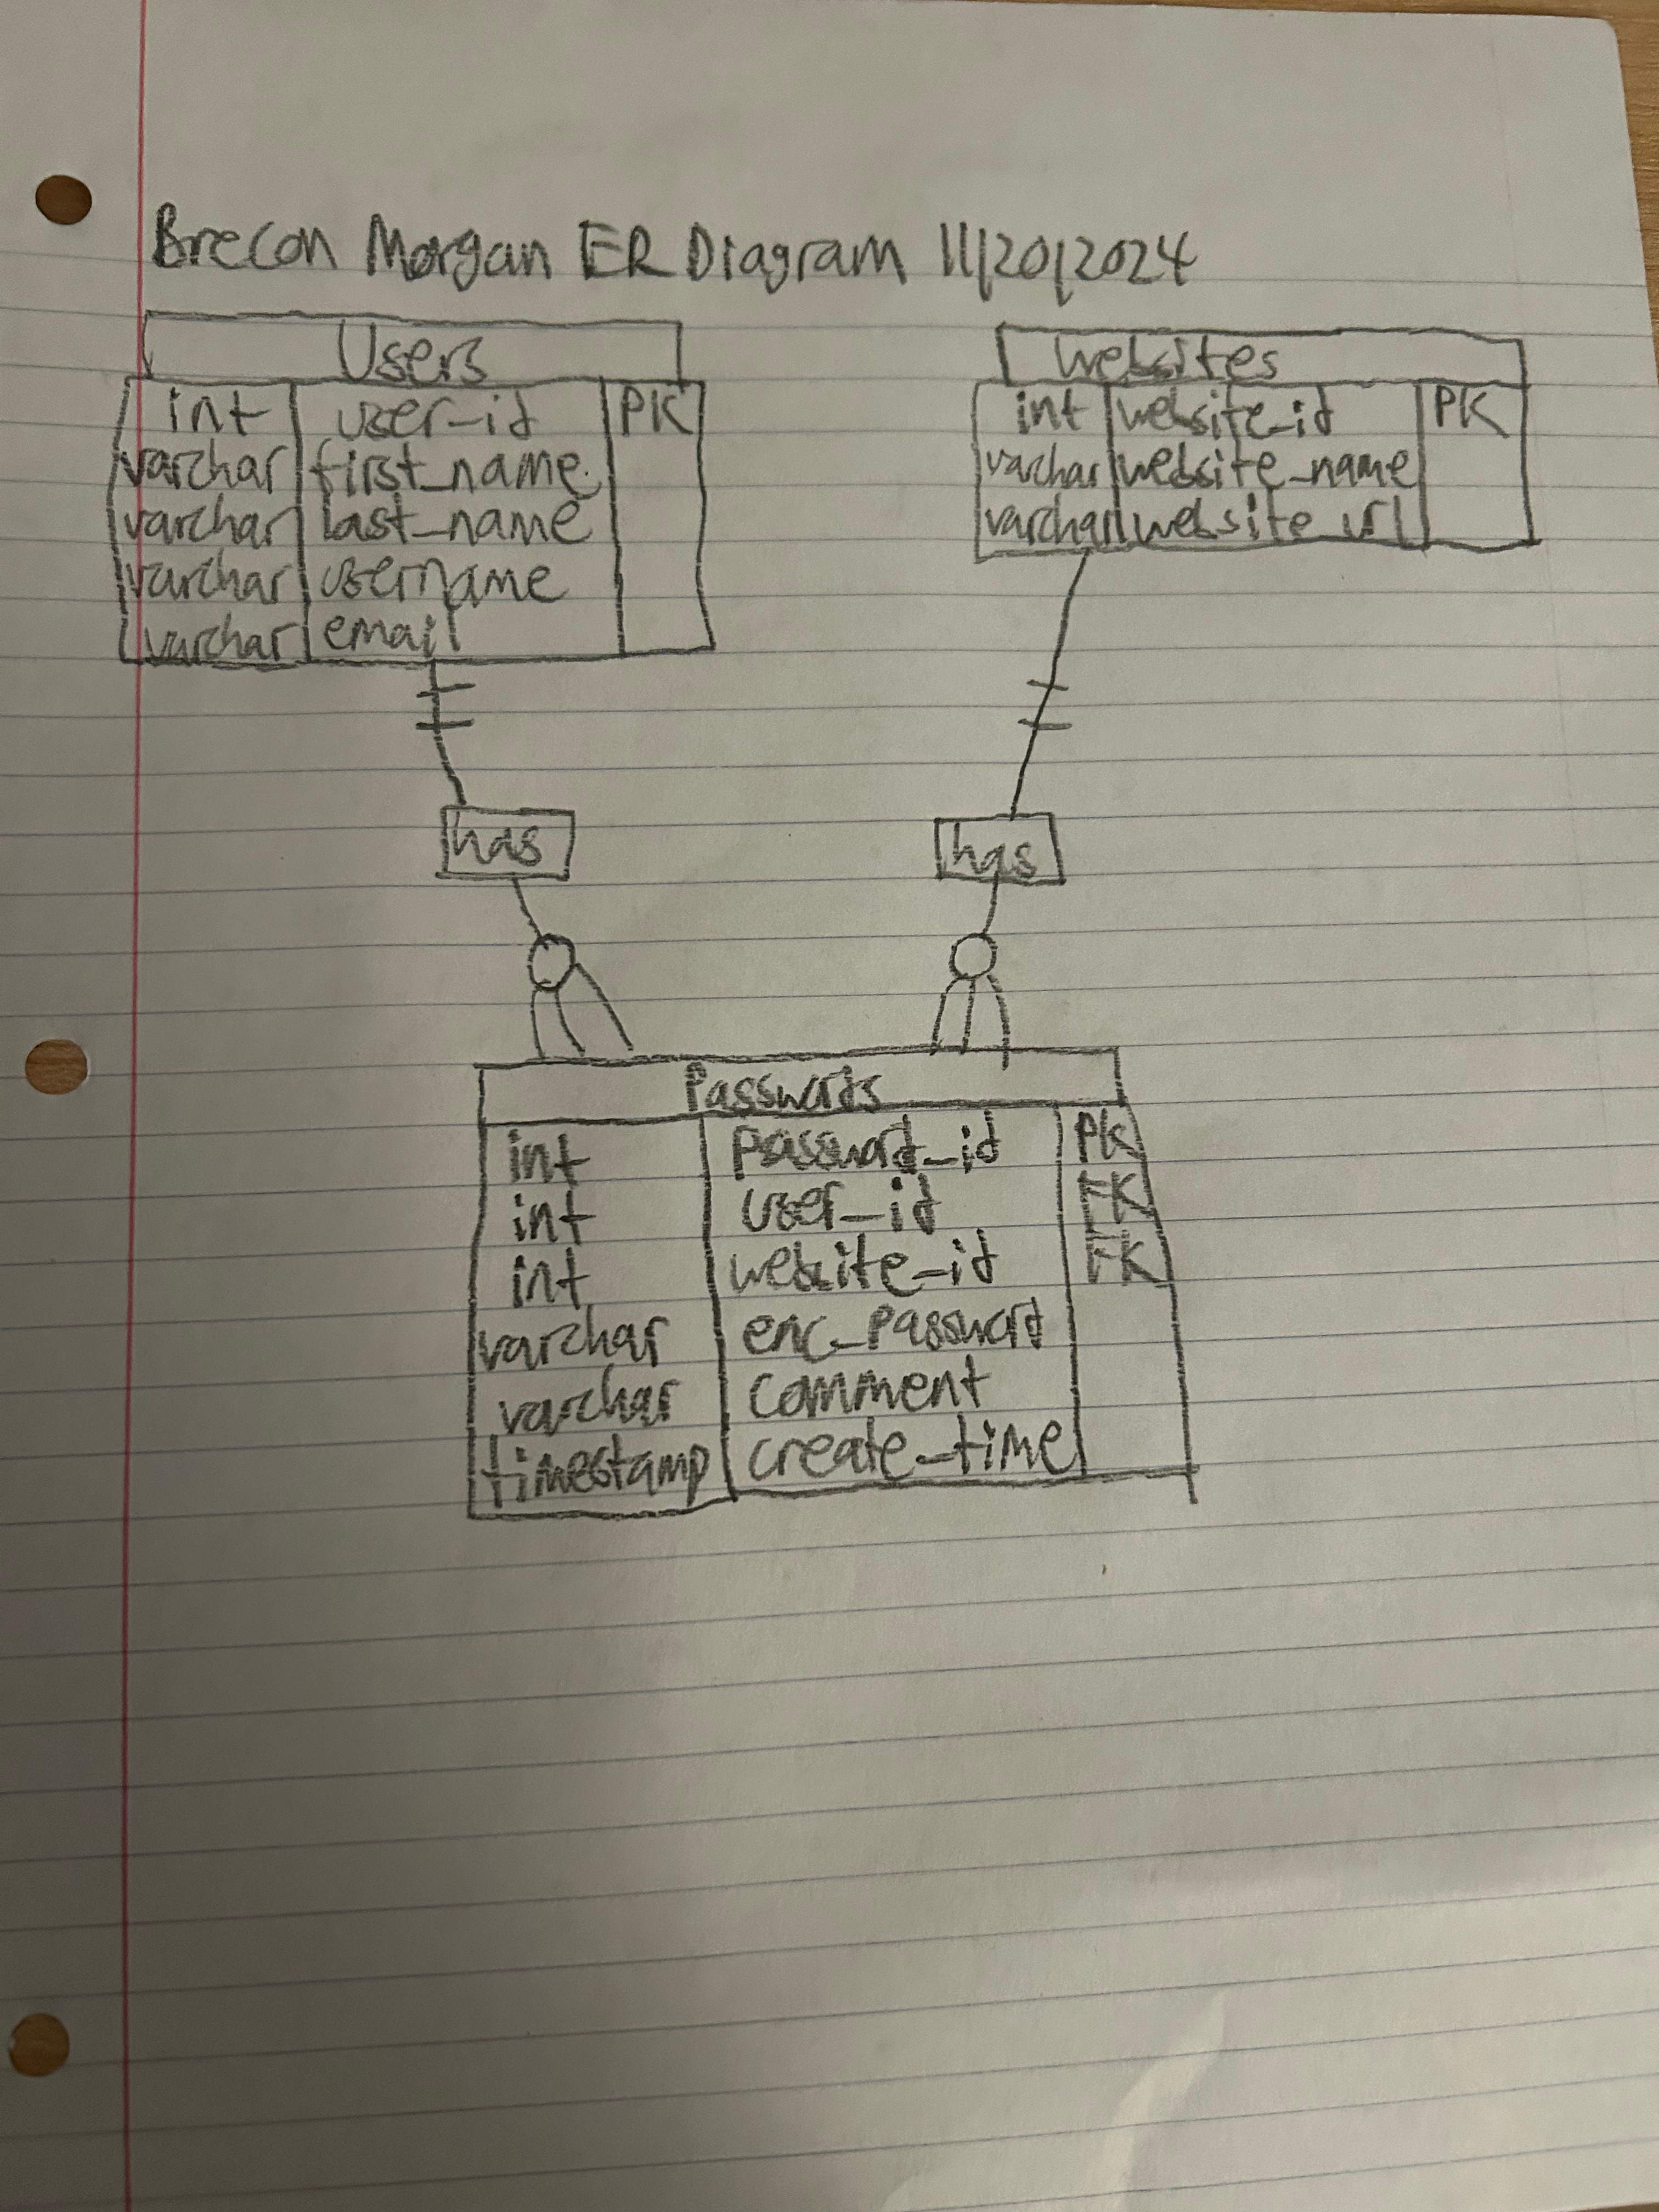 Brecon Morgan ER Diagram 11/20/2024
Users
int user_id PK
varchar first_name
varchar last_name
varchar username
varchar email
Websites
int website_id PK
varchar website_name
varchar website_url
has
has
Passwords
int password_id PK
int user_id FK
int website_id FK
varchar enc_password
varchar comment
timestamp create_time